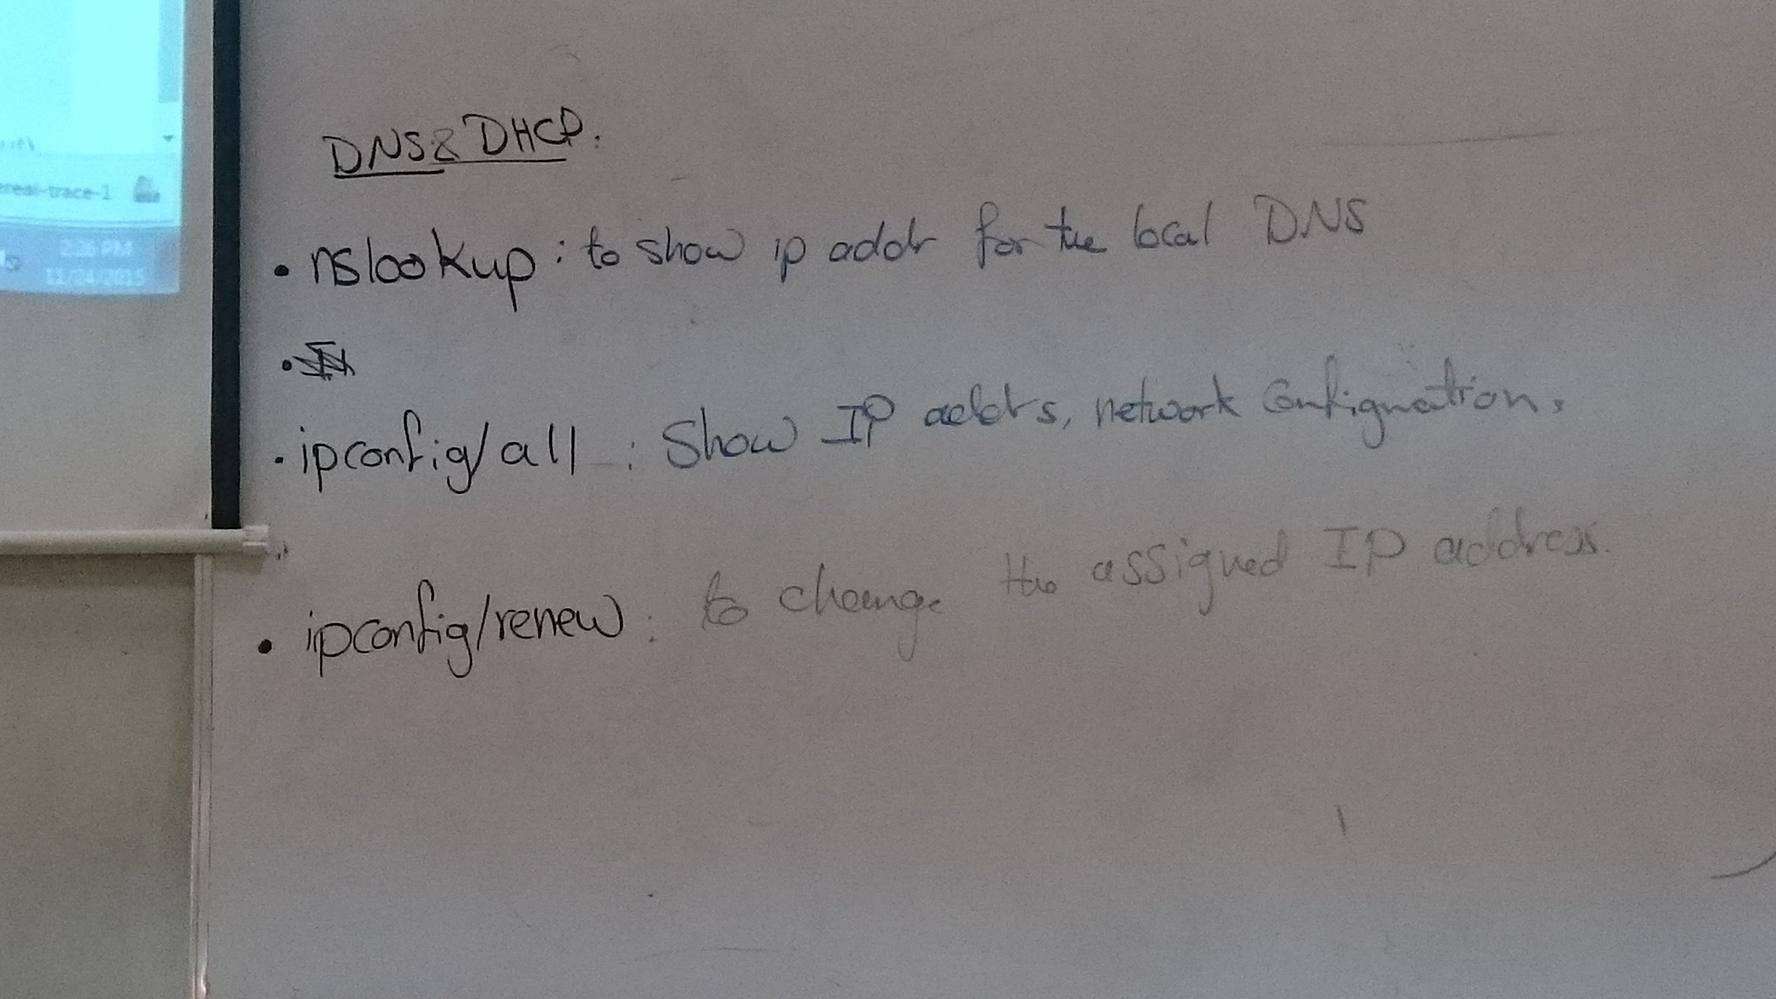 ereal-trace-1
2:26 PM
11/24/2015
DNS & DHCP.
• nslookup : to show ip addr for the local DNS
•
• ipconfig/all : Show IP addrs, network Configuration.
• ipconfig/renew : to change the assigned IP address.